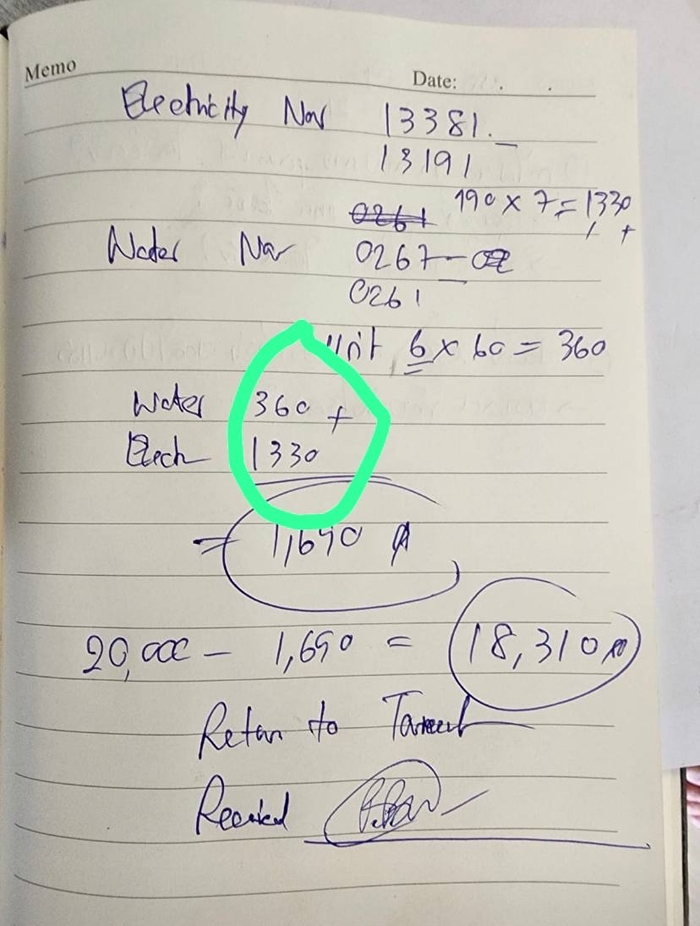 Memo
Date:
Electricity Nov 13381.
13191
190 x 7 = 1330
0261
Water Nov 0267
0261
Unit 6 x 60 = 360
Water 360 +
Elech 1330
= 1,690
20,000 - 1,690 = 18,310
Retan to
Received